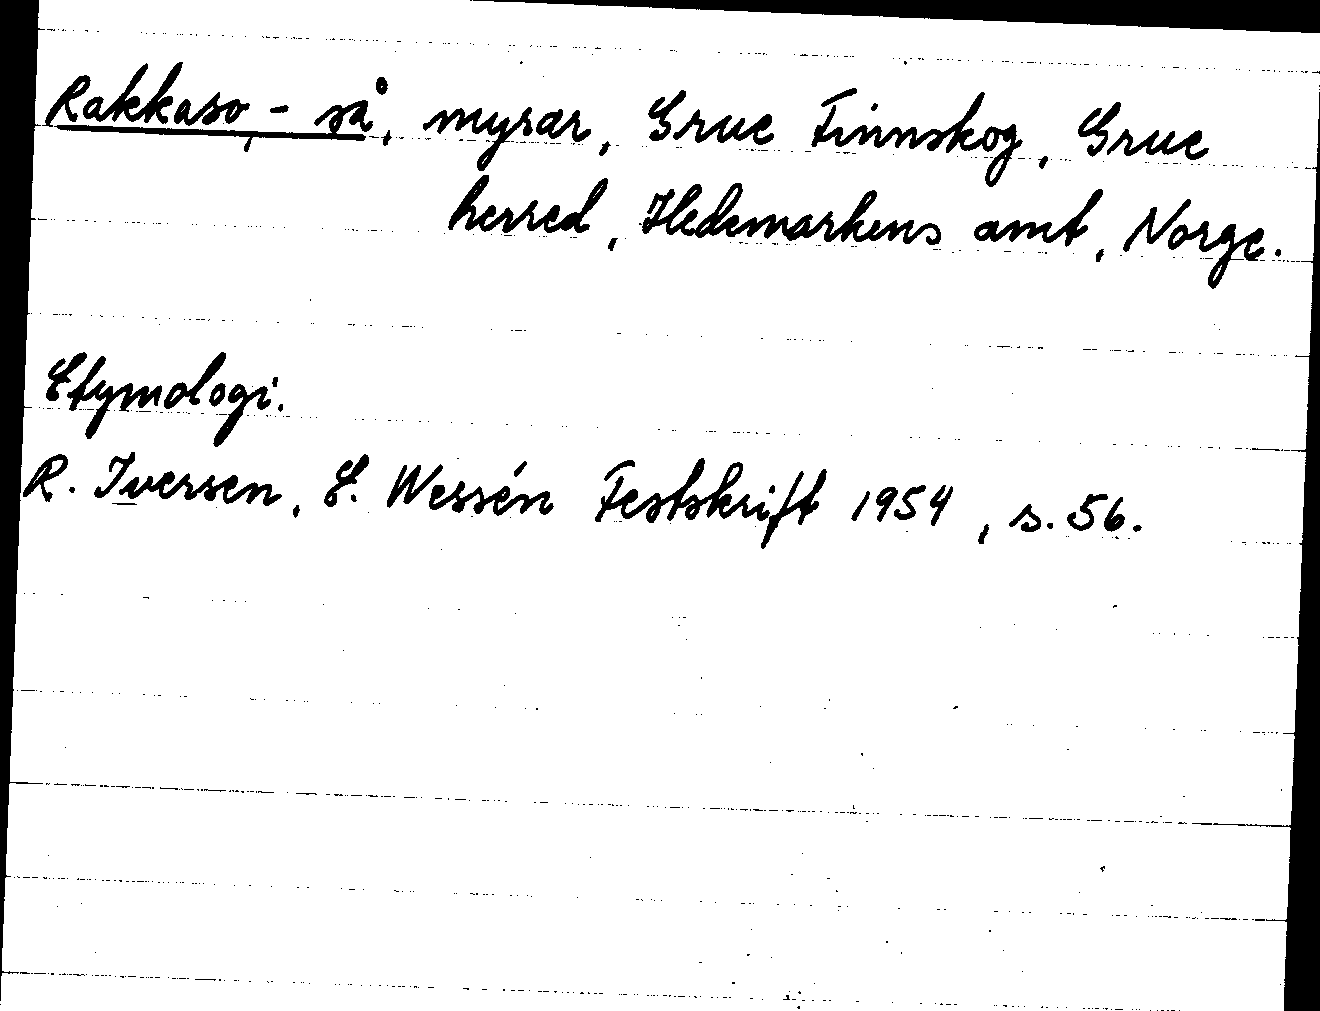 Rakkaso, -så, myrar, Grue Finnskog, Grue
herred, Hedemarkens amt, Norge.
Etymologi.
R. Iversen, E. Wessén Festskrift 1954, s. 56.